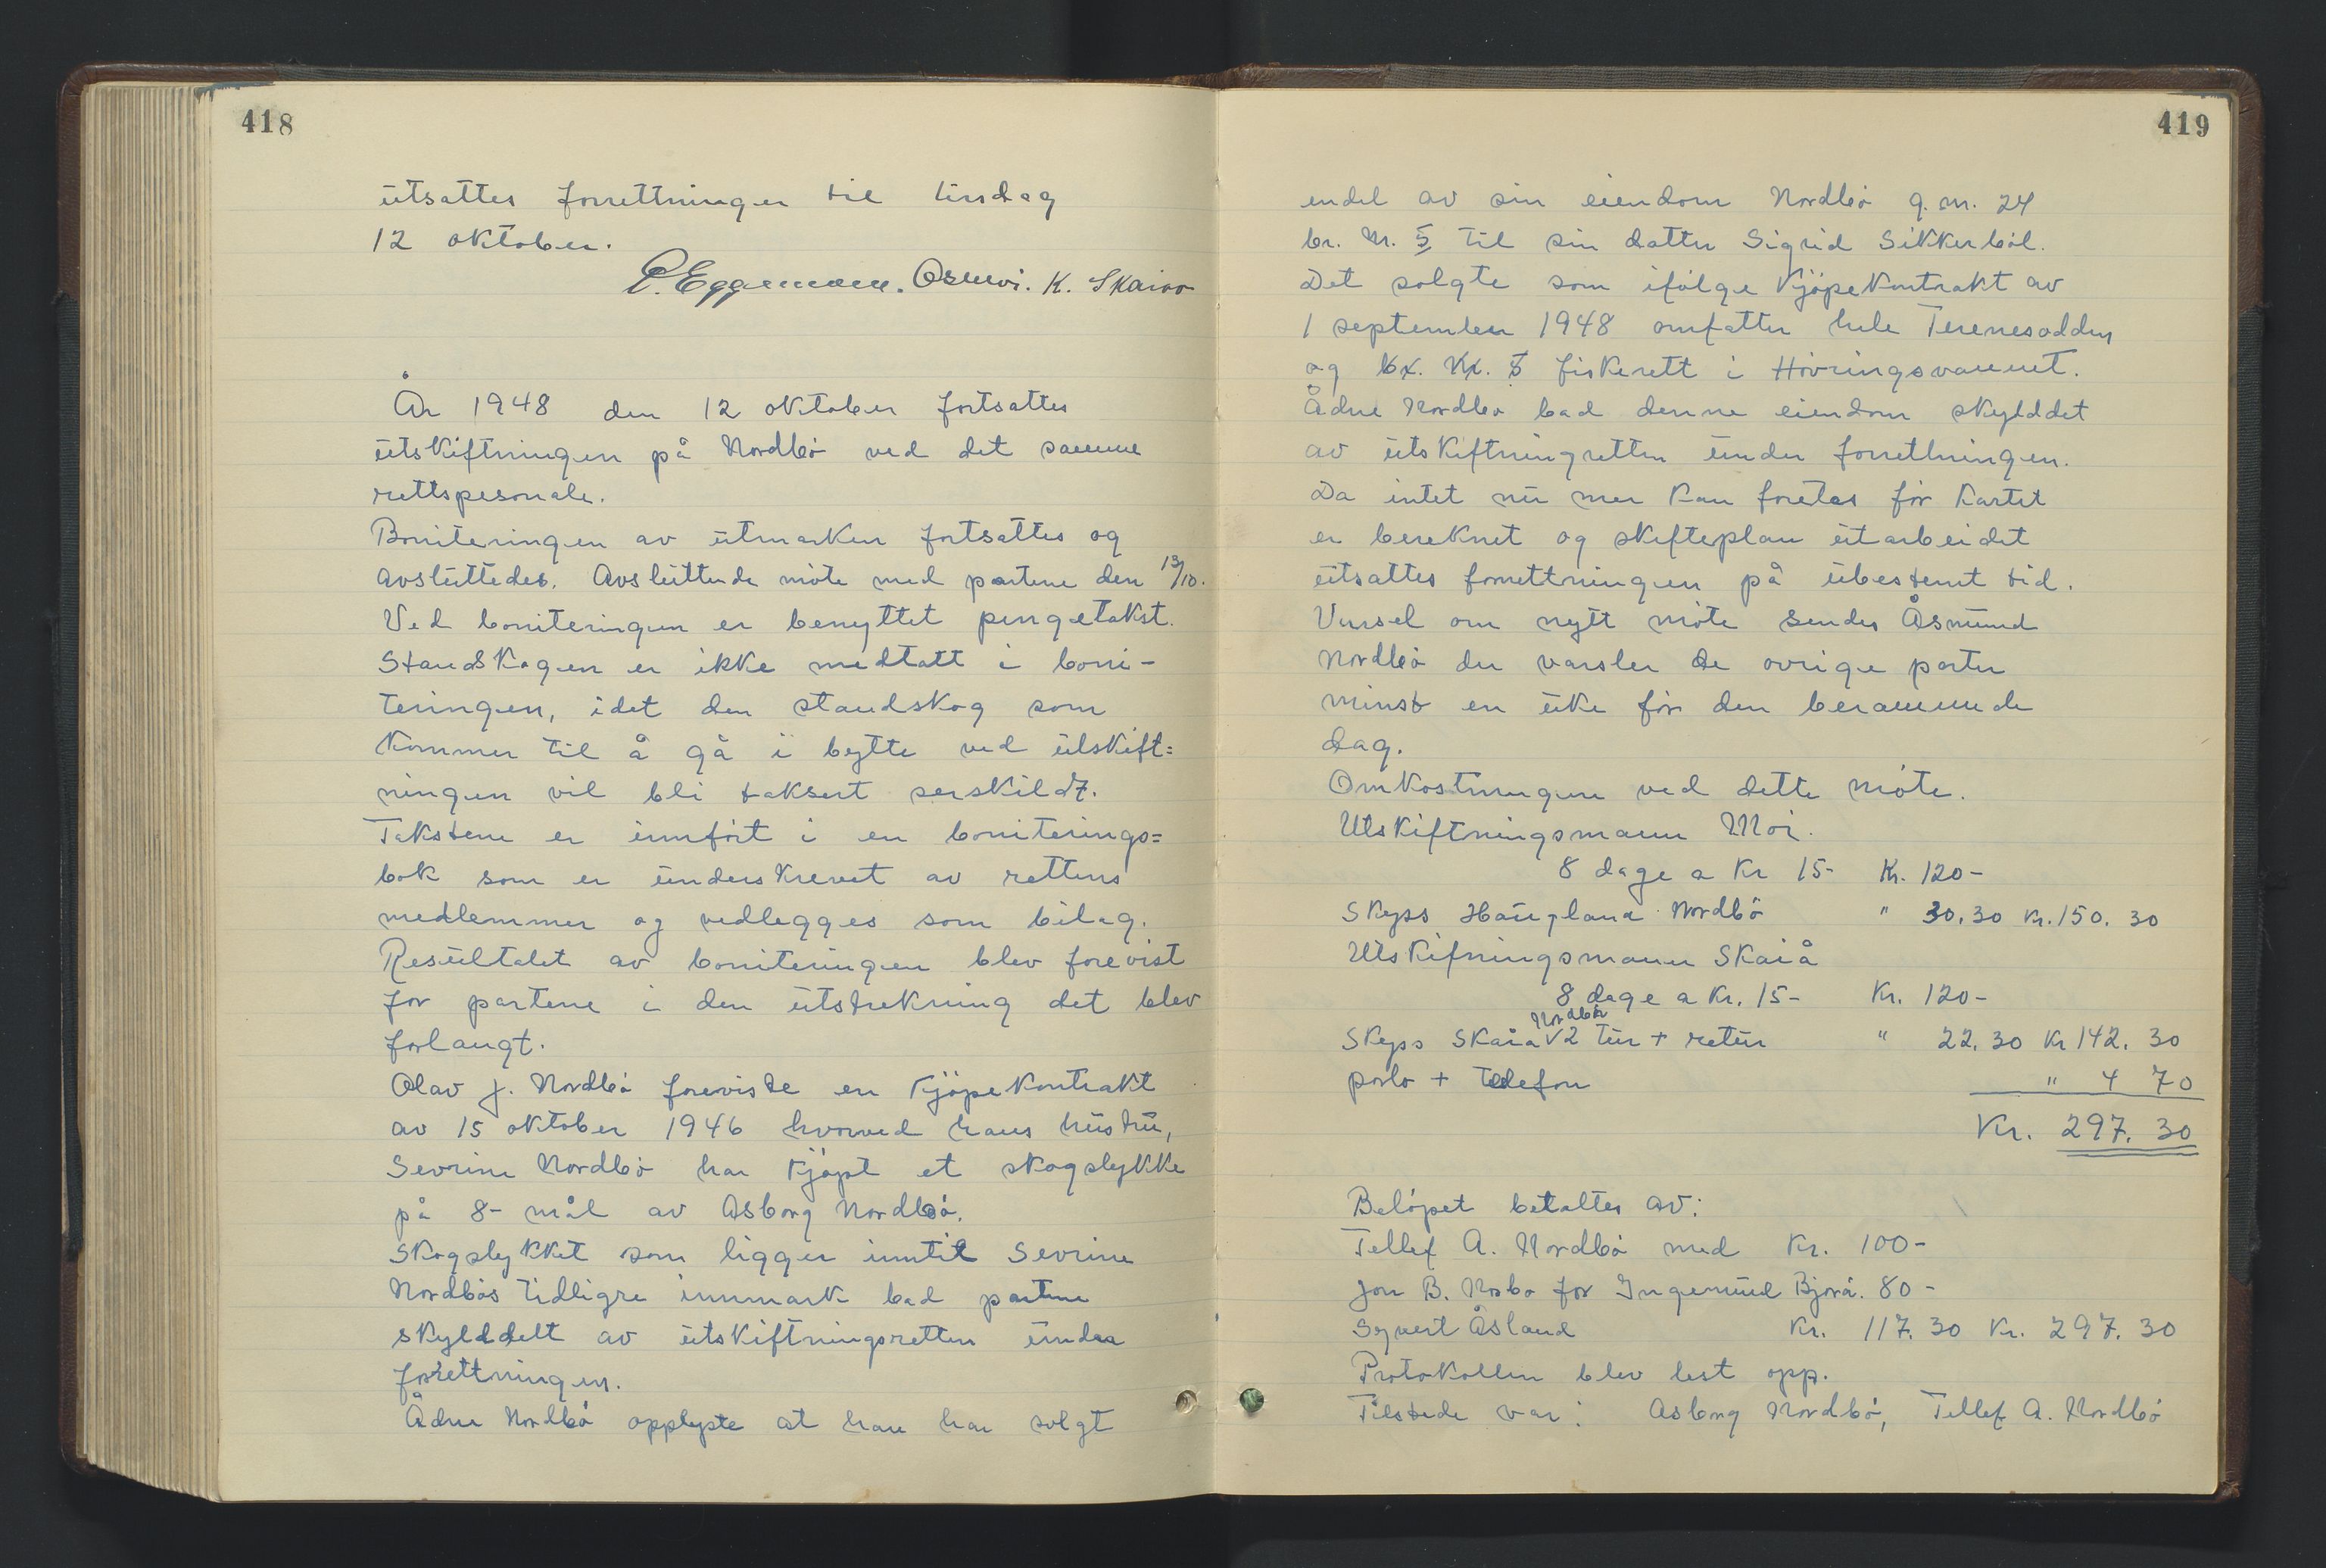 418
utsattes forrettningen til tirsdag
12 oktober.
P. Eggemoen. Osmoi. K. Skaiaa
År 1948 den 12 oktober fortsattes
utskiftningen på Nordbö ved det samme
rettspesonale.
Boniteringen av utmarken fortsattes og
avsluttedes. Avsluttende möte med partene den 13/10.
Ved boniteringen er benyttet pengetakst.
Standskogen er ikke medtatt i boni-
teringen, idet den standskog som
kommer til å gå i bytte ved utskift=
ningen vil bli taksert serskildt.
Takstene er innfört i en boniterings=
bok som er underskrevet av rettens
medlemmer og vedlegges som bilag.
Resultatet av boniteringen blev forevist
for partene i den utstrekning det blev
forlangt.
Olav J. Nordbö foreviste en Kjöpekontrakt
av 15 oktober 1946 hvorved hans hustru,
Sevrine Nordbö har Kjöpt et skogstykke
på 8- mål av Asborg Nordbö.
Skogstykket som ligger inntil Sevrine
Nordbös tidligre innmark bad partene
skylddelt av utskiftningsretten under
forrettningen.
Ådne Nordbö opplyste at han har solgt
419
endel av sin eiendom Nordbö g. nr. 24
br. nr. 5 til sin datter Sigrid Sikkerböl.
Det solgte som ifölge Kjöpekontrakt av
1 september 1948 omfatter hele Terenesodden
og br. nr. 5 fiskerett i Hövringsvannet.
Ådne Nordbö bad denne eiendom skylddet
av utskiftningretten under forrettningen.
Da intet nu mer kan foretas för kartet
er bereknet og skifteplan utarbeidet
utsattes forrettningen på ubestemt tid.
Varsel om nytt möte sendes Åsmund
Nordbö der varsler de ovrige parter
minst en uke för den berammede
dag.
Omkostningene ved dette möte.
Utskiftningsmann Moi.
8 dage a Kr 15- Kr. 120-
Skyss Haugland Nordbö " 30.30 Kr. 150. 30
Utskifningsmann Skaiå
8 dage a Kr. 15- Kr. 120-
Skyss Skaiå Nordbö 2 tur + retur " 22. 30 Kr 142. 30
porto + telefon " 4 70
Kr. 297. 30
Belöpet betaltes av:
Tellef A. Nordbö med Kr. 100-
Jon B. Nosbo for Ingemund Bjorå. 80-
Syvert Åsland Kr. 117. 30 Kr. 297. 30
Protokollen blev lest opp.
Tilstede var: Asborg Nordbö, Tellef A. Nordbö